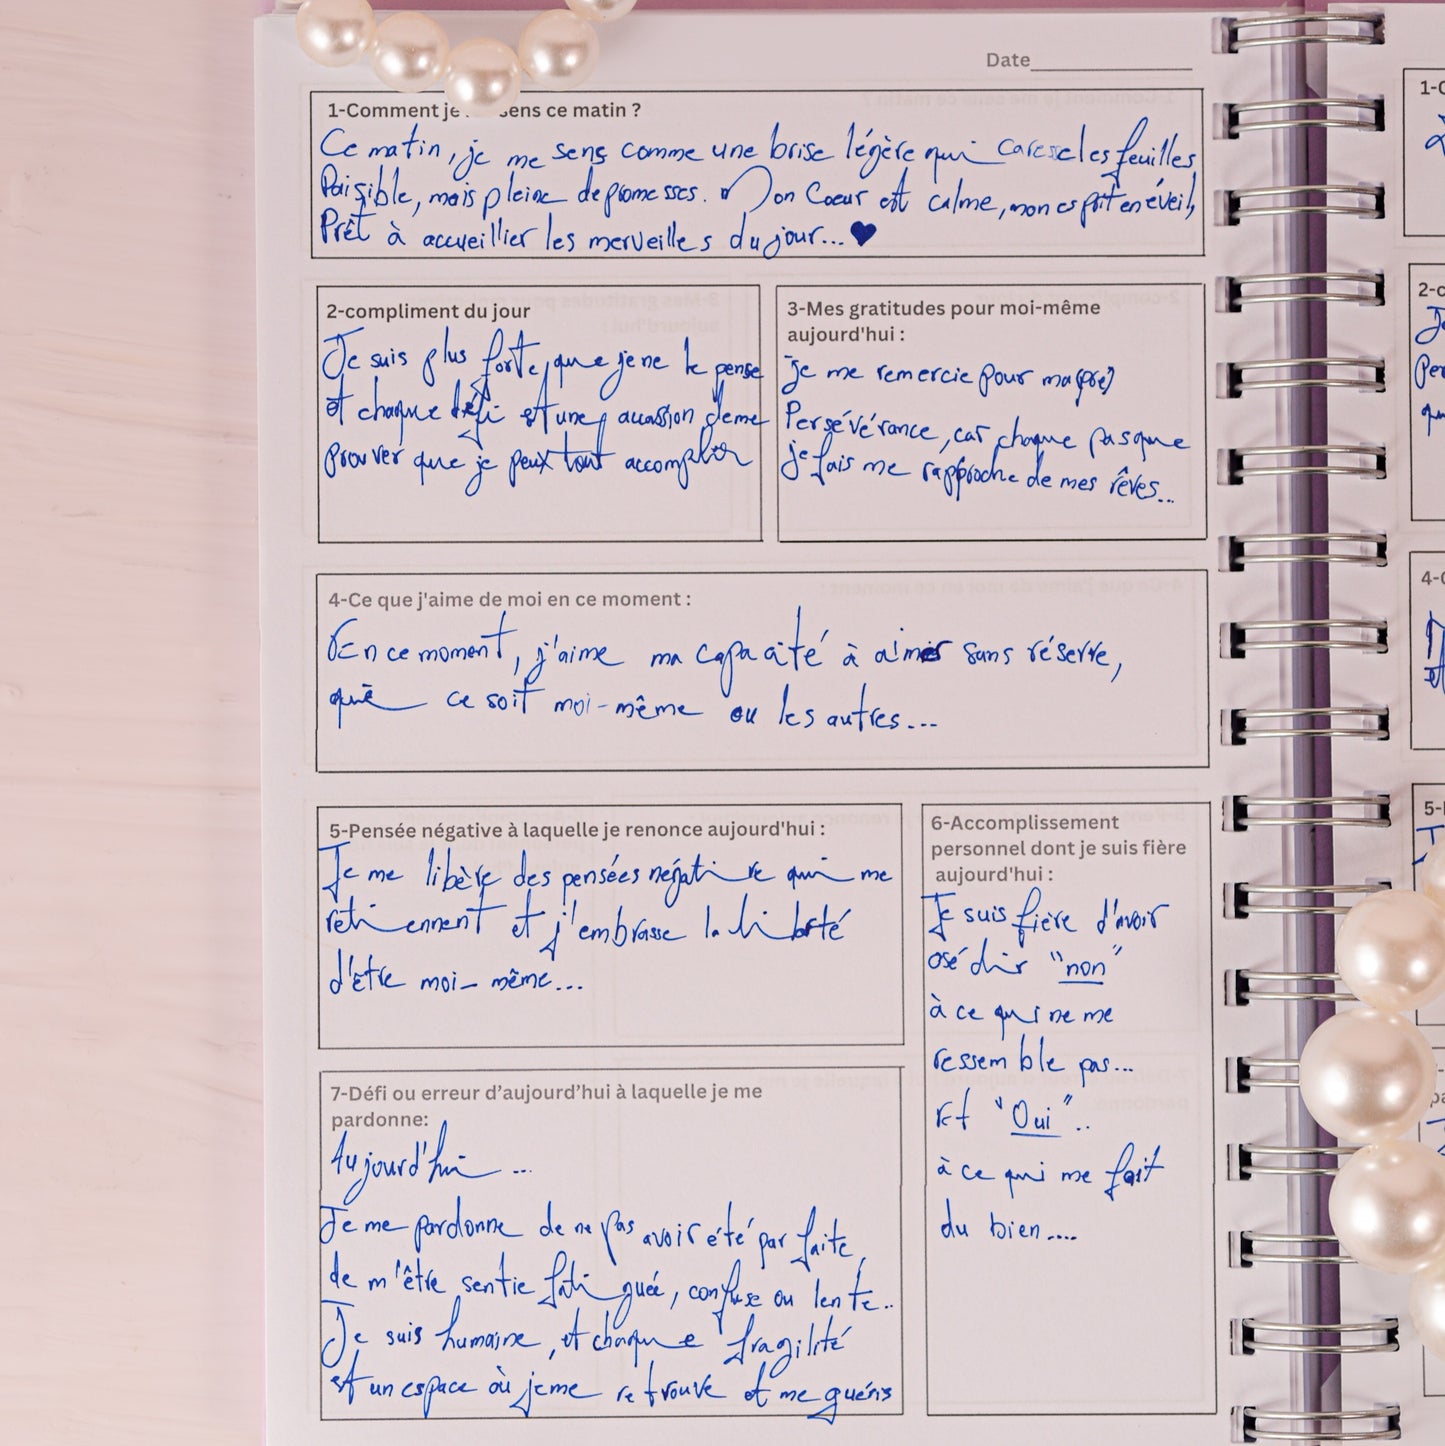 Date
1-Comment je sens ce matin ?
Ce matin, je me sens comme une brise légère qui caresse les feuilles
Paisible, mais pleine de promesses. Mon Coeur est calme, mon esprit en éveil,
Prêt à accueillier les merveilles du jour...
2-compliment du jour
Je suis plus forte, que je ne le pense
et chaque défi est une accassion de me
prouver que je peux tout accomplir
3-Mes gratitudes pour moi-même
aujourd'hui :
je me remercie pour ma (pre)
Persévérance, car chaque pas que
je fais me rapproche de mes rêves...
4-Ce que j'aime de moi en ce moment :
En ce moment, j'aime ma capacité à aimer sans réserve,
que ce soit moi-même ou les autres...
5-Pensée négative à laquelle je renonce aujourd'hui :
Je me libère des pensées négative qui me
retiennent et j'embrasse la liberté
d'être moi-même...
6-Accomplissement
personnel dont je suis fière
aujourd'hui :
Je suis fière d'avoir
osé dir "non"
à ce qui ne me
ressemble pas...
Et "Oui"..
à ce qui me fait
du bien....
7-Défi ou erreur d'aujourd'hui à laquelle je me
pardonne:
Aujourd'hui ...
Je me pardonne de ne pas avoir été parfaite,
de m'être sentie fatiguée, confuse ou lente..
Je suis humaine, et chaque fragilité
est un espace où je me retrouve et me guéris
1-C
2-c
Per
qu
4-C
et
5-P